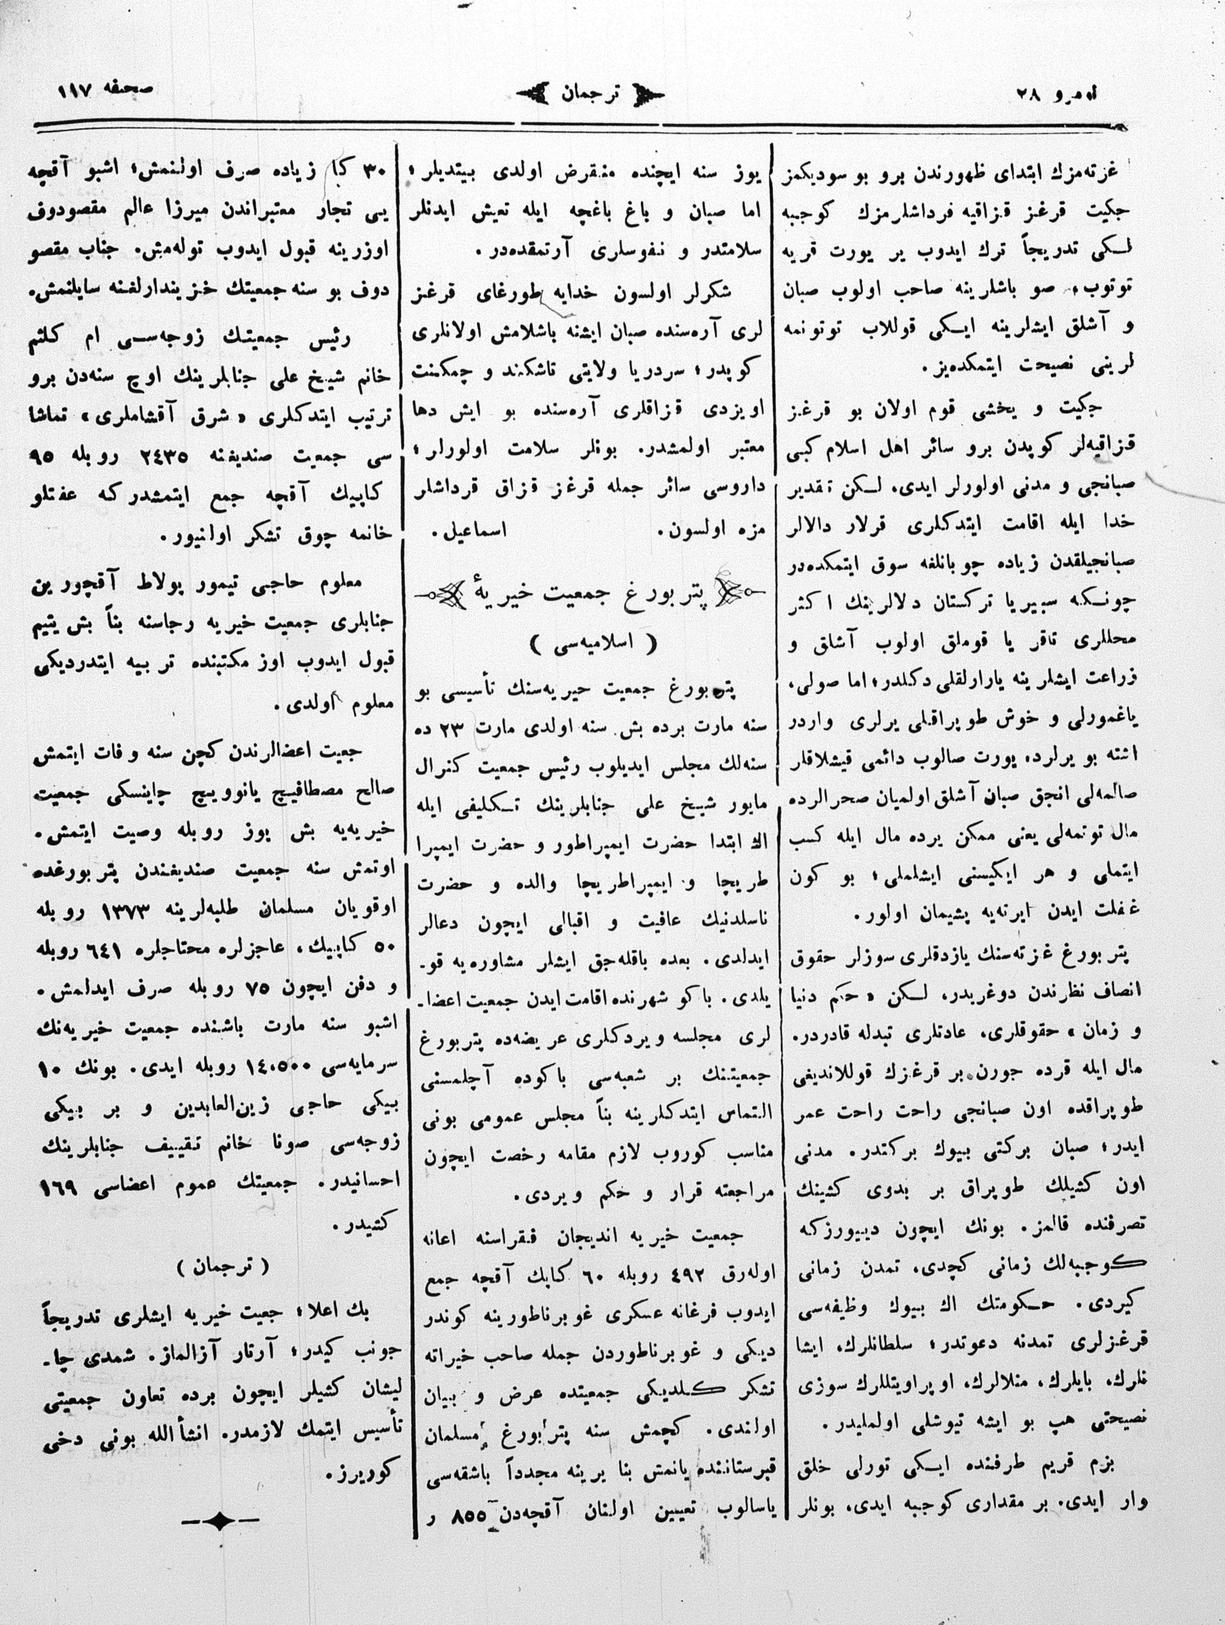 نومرو ٢٨
ترجمان
صحيفه ١١٧
غزته‌مزك ابتداى ظهورندن برو بو سوديكمز
جكيت قرغز قزاقيه قرداشلرمزك كوجبه
لكى تدريجاً ترك ايدوب ير يورت قريه
توتوب، صو باشلرينه صاحب اولوب صبان
و آشلق ايشلرينه ايكى قوللاب توتونمه
لرينى نصيحت ايتمكده‌يز.
جكيت و يخشى قوم اولان بو قرغز
قزاقيه‌لر كوپدن برو سائر اهل اسلام كبى
صبانجى و مدنى اولورلر ايدى، لكن تقدير
خدا ايله اقامت ايتدكلرى قرلار دالالر
صبانجيلقدن زياده چوبانلغه سوق ايتمكده‌در
چونكه سبيريا تركستان دلالرينك اكثر
محللرى تاقر يا قوملق اولوب آشلق و
زراعت ايشلرينه يارارلقلى دكلدر؛ اما صولى،
ياغمورلى و خوش طوپراقلى يرلرى واردر
اشته بو يرلرده يورت صالوب دائمى قيشلاقلر
صالمه‌لى انجق صبان آشلق اولميان صحرالرده
مال توتمه‌لى يعنى ممكن يرده مال ايله كسب
ايتملى و هر ايكيسنى ايشلملى؛ بو كون
غفلت ايدن ايرته‌يه پشيمان اولور.
پتربورغ غزته‌سنك يازدقلرى سوزلر حقوق
انصاف نظرندن دوغريدر، لكن « حكم دنيا
و زمان » حقوقلرى، عادتلرى تبدله قادردر.
مال ايله قرده جورن بر قرغزك قوللانديغى
طوپراقده اون صبانجى راحت راحت عمر
ايدر؛ صبان بركتى بيوك بركتدر. مدنى
اون كشيلك طوپراق بر بدوى كشينك
تصرفنده قالمز. بونك ايچون ديييورزكه
كوجبه‌لك زمانى كچدى، تمدن زمانى
كيردى. حكومتك اك بيوك وظيفه‌سى
قرغزلرى تمدنه دعوتدر؛ سلطانلرك، ايشا
نلرك، بايلرك، منلالرك، اوپراويتللرك سوزى
نصيحتى هپ بو ايشه تيوشلى اولمليدر.
بزم قريم طرفنده ايكى تورلى خلق
وار ايدى. بر مقدارى كوجبه ايدى، بونلر
يوز سنه ايچنده منقرض اولدى بيتديلر؛
اما صبان و باغ باغچه ايله تعيش ايدنلر
سلامتدر و نفوسلرى آرتمقده‌در.
شكرلر اولسون خدايه طورغاى قرغز
لرى آره‌سنده صبان ايشنه باشلامش اولانلرى
كوپدر؛ سردريا ولايتى تاشكند و چمكنت
اويزدى قزاقلرى آره‌سنده بو ايش دها
معتبر اولمشدر. بونلر سلامت اولورلر؛
داروسى سائر جمله قرغز قزاق قرداشلر
مزه اولسون. اسماعيل.
پتربورغ جمعيت خيريهٔ
( اسلاميه‌سى )
پتربورغ جمعيت خيريه‌سنك تأسيسى بو
سنه مارت برده بش سنه اولدى مارت ٢٣ ده
سنه‌لك مجلس ايديلوب رئيس جمعيت كنرال
مايور شيخ على جنابلرينك تكليفى ايله
اك ابتدا حضرت ايمپراطور و حضرت ايمپرا
طريچا و ايمپراطريچا والده و حضرت
ناسلدنيك عافيت و اقبالى ايچون دعالر
ايدلدى. بعده باقله‌جق ايشلر مشاوره‌يه قو-
يلدى. باكو شهرنده اقامت ايدن جمعيت اعضا-
لرى مجلسه ويردكلرى عريضه‌ده پتربورغ
جمعيتنك بر شعبه‌سى باكوده آچلمسنى
التماس ايتدكلرينه بناً مجلس عمومى بونى
مناسب كوروب لازم مقامه رخصت ايچون
مراجعته قرار و حكم ويردى.
جمعيت خيريه انديجان فقراسنه اعانه
اوله‌رق ٤٩٢ روبله ٦٠ كاپك آقچه جمع
ايدوب فرغانه عسكرى غوبرناطورينه كوندر
ديكى و غوبرناطوردن جمله صاحب خيراته
تشكر كلديكى جمعيتده عرض و بيان
اولندى. كچمش سنه پتربورغ مسلمان
قبرستاننده يانمش بنا يرينه مجدداً باشقه‌سى
ياسالوب تعيين اولنان آقچه‌دن ٨٥٥ ر
٣٠ كپا زياده صرف اولنمش؛ اشبو آقچه
يى تجار معتبراندن ميرزا عالم مقصودوف
اوزرينه قبول ايدوب توله‌مش. جناب مقصو
دوف بو سنه جمعيتك خزيندارلغنه سايلنمش.
رئيس جمعيتك زوجه‌سى ام كلثم
خانم شيخ على جنابلرينك اوچ سنه‌دن برو
ترتيب ايتدكلرى « شرق آقشاملرى » تماشا
سى جمعيت صنديغنه ٢٤٣٥ روبله ٩٥
كاپيك آقچه جمع ايتمشدركه عفتلو
خانمه چوق تشكر اولنيور.
معلوم حاجى تيمور پولاط آقچورين
جنابلرى جمعيت خيريه رجاسنه بناً بش يتيم
قبول ايدوب اوز مكتبنده تربيه ايتدرديكى
معلوم اولدى.
جمعيت اعضالرندن كچن سنه وفات ايتمش
صالح مصطافيچ يانوويچ چاينسكى جمعيت
خيريه‌يه بش يوز روبله وصيت ايتمش.
اوتمش سنه جمعيت صنديغندن پتربورغده
اوقويان مسلمان طلبه‌لرينه ١٣٧٣ روبله
٥٠ كاپيك، عاجزلره محتاجلره ٦٤١ روبله
و دفن ايچون ٧٥ روبله صرف ايدلمش.
اشبو سنه مارت باشنده جمعيت خيريه‌نك
سرمايه‌سى ١٤،٥٠٠ روبله ايدى. بونك ١٠
بيكى حاجى زين‌العابدين و بر بيكى
زوجه‌سى صونا خانم تقييف جنابلرينك
احسانيدر. جمعيتك عموم اعضاسى ١٦٩
كشيدر.
( ترجمان )
بك اعلا؛ جمعيت خيريه ايشلرى تدريجاً
جونب كيدر؛ آرتار آزالماز. شمدى چا-
ليشان كشيلر ايچون برده تعاون جمعيتى
تأسيس ايتمك لازمدر. انشأالله بونى دخى
كوريرز.